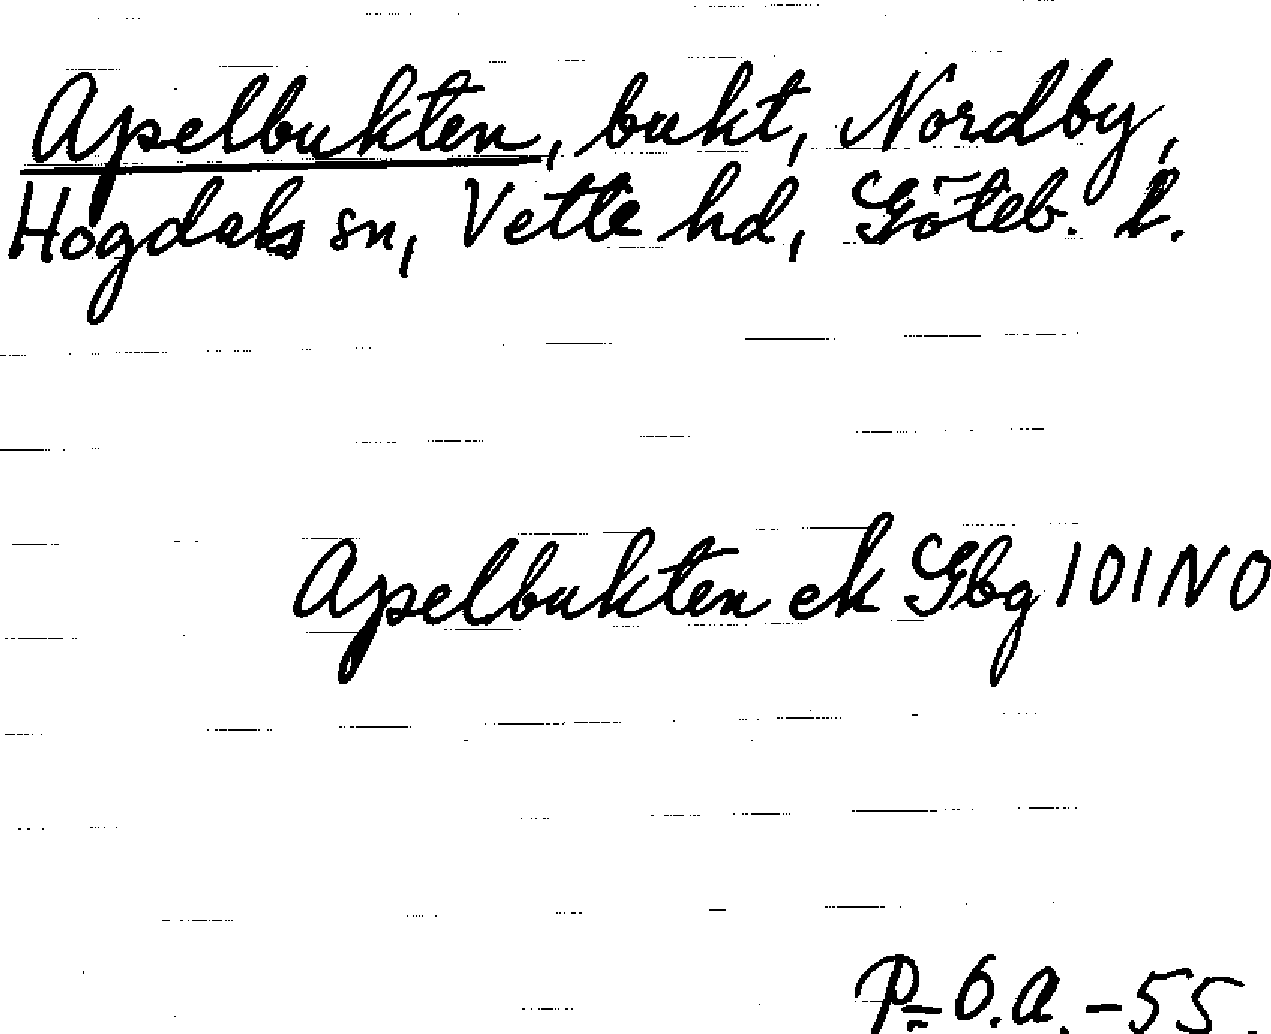 Apelbukten, bukt, Nordby,
Hogdals sn, Vette hd, Göteb. l.
Apelbukten ek Gbg 101 NO
P-O.A.-55.